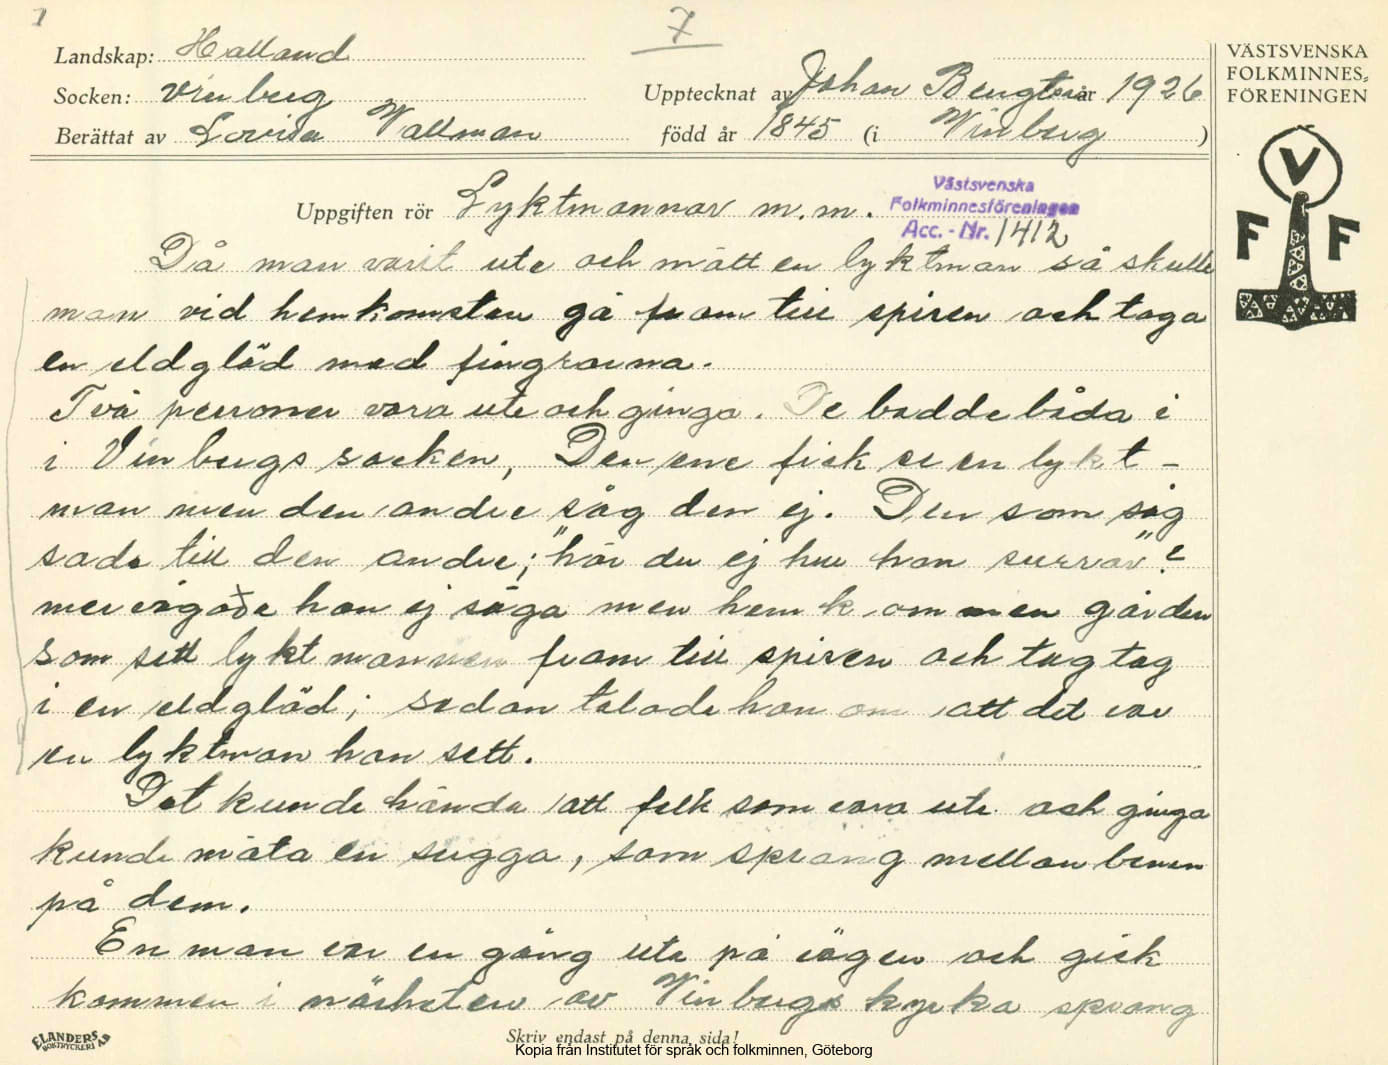 7
7
Landskap: Halland
Socken: Vinberg
Upptecknat av Johan Bengtsson år 1926
Berättat av Lovisa Wallman
född år 1845 (i Winberg)
VÄSTSVENSKA
FOLKMINNES-
FÖRENINGEN
V
F F
Uppgiften rör Lyktmannar m.m.
Västsvenska
Folkminnesföreningen
Acc. - Nr. 1412
Då man varit ute och mött en lyktman så skulle
man vid hemkomsten gå fram till spisen och taga
en eldglöd med fingrarna.
Två personer vara ute och ginga. De bodde båda i
i Vinbergs socken, Den ene fick se en lykt-
man men den andre såg den ej. Den som såg
sade till den andre; "hör du ej hur han surrar"?
mer vågade han ej säga men hemkommen gården
som sett lyktmannen fram till spisen och tog tag
i en eldglöd; sedan talade han om att det var
en lyktman han sett.
Det kunde hända att folk som vara ute och ginga
kunde möta en sugga, som sprang mellan benen
på dem.
En man var en gång ute på vägen och gick
kommen i närheten av Vinbergs kyrka sprang
ELANDERS
BOKTRYCKERI AB
Skriv endast på denna sida!
Kopia från Institutet för språk och folkminnen, Göteborg